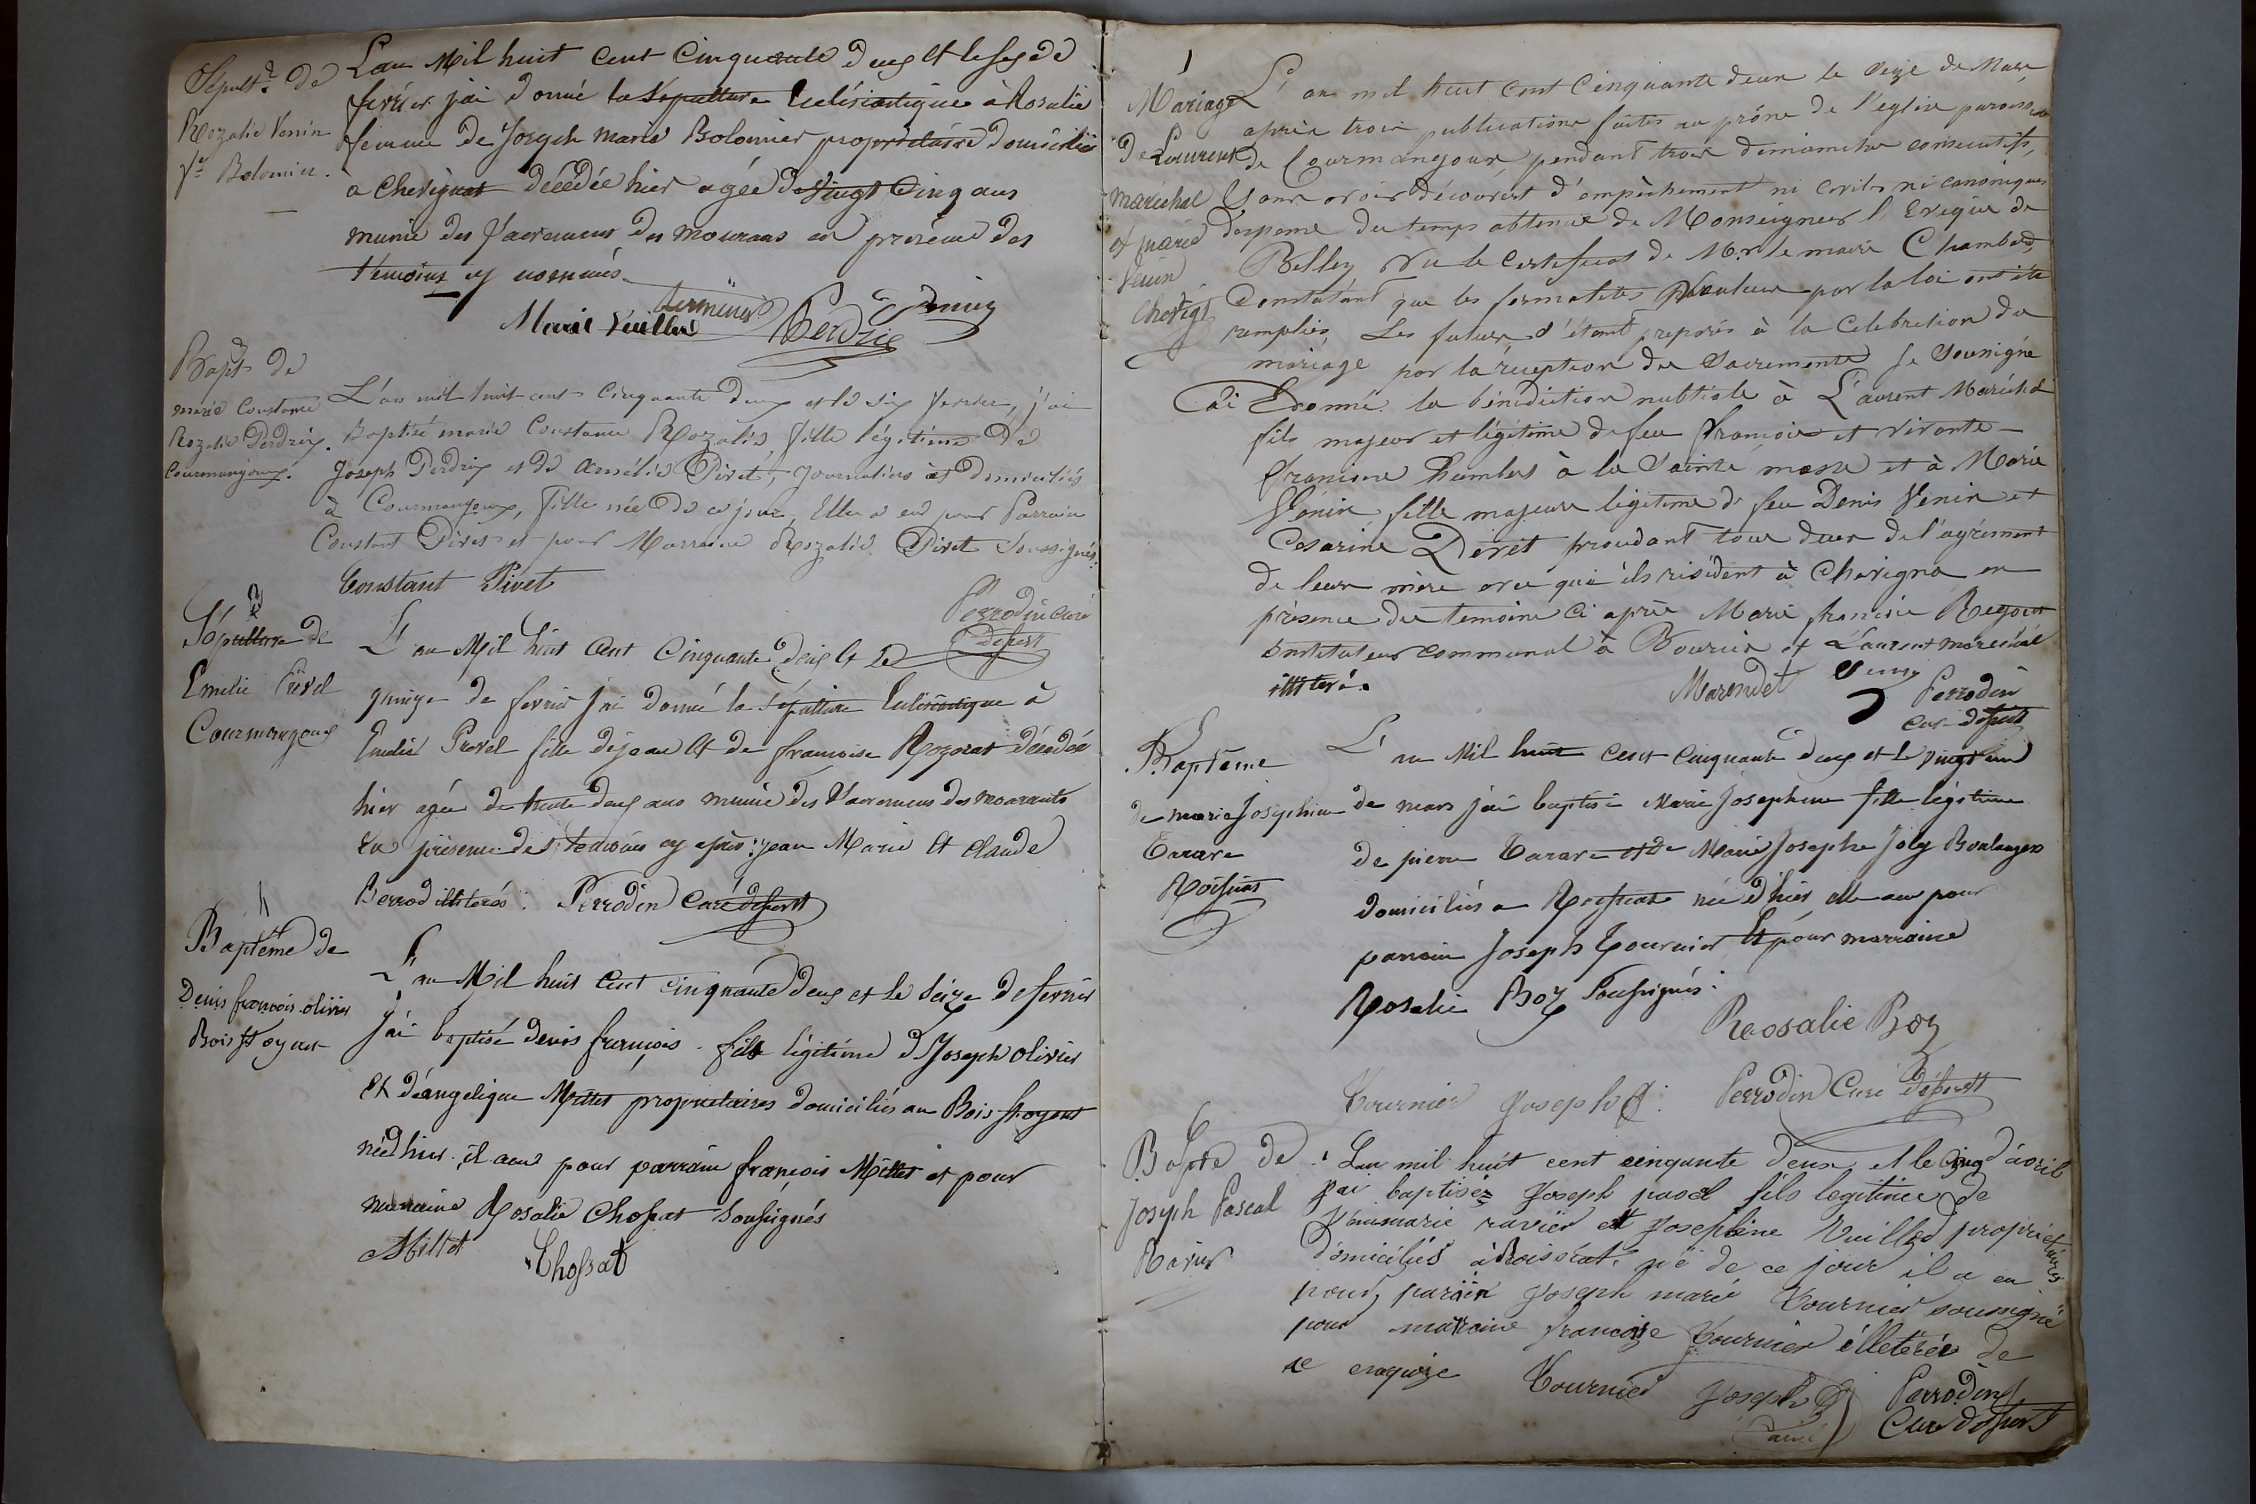 Sépult.re de
Rozalie Venin
fe Bolomier.
L'an Mil huit cent Cinquante deux et le six de
février j'ai donné la Sépulture Ecclésiastique à Rosalie
femme de Joseph Marie Bolomier propriétaire domiciliée
à Cherignat décédée hier agée de vingt Cinq ans
munie des Sacremens des mourans en présence des
témoins cy nommés
Marie Vuillod
Perdrix
Bapt. de
marie Constance
Rozalie Perdrix.
Courmangoux.
L'an mil huit cent Cinquante deux et le six février, j'ai
Baptisé marie Constance Rozalie fille légitime de
Joseph Perdrix et de Amélie Pivet, journaliers et domiciliés
à Courmangoux, fille née de ce jour, Elle a eu pour Parrain
Constant Pivet et pour Marraine Rozalie Pivet Soussignés.
Constant Pivet
Perrodin curé
désert
Sépulture de
Emelie Prévél
Courmangoux
L'an Mil huit Cent Cinquante deux et le
quinze de fevrier j'ai donné la Sépulture Ecclésiastique à
Emelie Prevel fille de jean et de françoise Rozerat décédée
hier agée de trente deux ans munie des Sacremens des mourants
En présence des témoins cy après : jean Marie et Claude
Perrod illiterés. Perrodin Curé désert
Baptême de
Denis francois olivier
Bois froyant
L'an Mil huit Cent cinquante deux et le Seize de fevrier
J'ai baptisé denis françois fils légitime de Joseph olivier
Et d'angelique Millet proprietaires domiciliés au Bois froyant
né d'hier, il a eu pour parrain françois Millet et pour
marraine Rosalie Chossat soussignés
Millet Chossat
Mariage
De Laurent
maréchal
et marie
Venin
Cherigt
L'an mil huit Cent Cinquante deux le seize de Mars
après trois publications faites au prône de l'église paroissiale
de Courmangoux, pendant trois dimanches consécutifs,
sans avoir découvert d'empêchement ni civils ni canoniques
dispense du temps obtenue de Monseigneur l'Evêque de
Belley Vu le Certificat de Mr. le maire Chambard,
Constatant que les formalités voulues par la loi ont été
remplies, Les futurs s'étant préparés à la Célébration du
mariage par la réception des Sacrements Je Soussigné
ai Donné la bénédiction nuptiale à Laurent Maréchal
fils majeur et légitime de feu François et vivante
françoise Humbert à la Sainte messe et à Marie
Vénin fille majeure légitime de feu Denis Venin et
Césarine Pivet procédant tous deux de l'agrément
de leurs mère avec qui ils résident à Cherigna en
présence des témoins ci après Marie francois
instituteur communal à et Laurent maréchal
illitéré. Marendet Venin Perrodin
cur. désert
Baptême
de marie Joséphine
Tarare
Roissiat
L'an Mil huit cent Cinquante deux et le vingt un
de mars j'ai baptisé Marie Josephine fille légitime
de pierre Tarare et de Marie Josephe Joly Boulangers
domiciliés a Roissiat née d'hier, elle a eu pour
parrain Joseph Tournier Et pour marraine
Rosalie Boz Soussignés.
Rosalie Boz
Tournier Joseph Perrodin Curé désert
Bapte de
Joseph Pascal
Ravier
L'an mil huit cent cinquante deux et le cinq d'avril
j'ai baptisez Joseph pascal fils legitime de
ravier et Josephine Vuillod propriétaires
domiciliés à Roissiat. né de ce jour il a eu
pour parain Joseph marie Tournier soussigné
pour marraine francoise Tournier illeterée de
ce enquise Tournier Joseph Perrodin
Curé désert